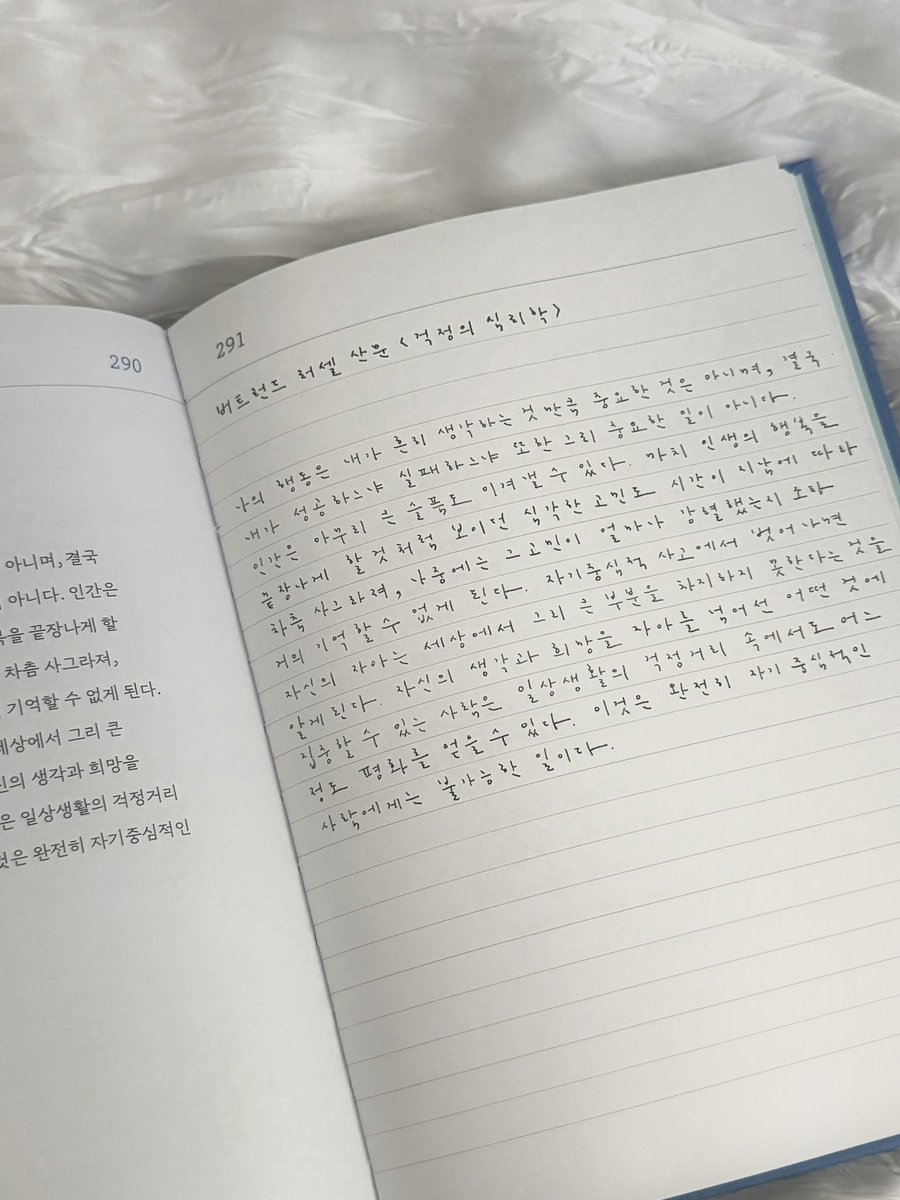 290
아니며, 결국
아니다. 인간은
복을 끝장나게 할
차츰 사그라져,
기억할 수 없게 된다.
세상에서 그리 큰
신의 생각과 희망을
은 일상생활의 걱정거리
것은 완전히 자기중심적인
291
버트런드 러셀 산문 <걱정의 심리학>
나의 행동은 내가 흔히 생각하는 것만큼 중요한 것은 아니며, 결국
내가 성공하느냐 실패하느냐 또한 그리 중요한 일이 아니다.
인간은 아무리 큰 슬픔도 이겨낼 수 있다. 마치 인생의 행복을
끝장나게 할것처럼 보이던 심각한 고민도 시간이 지남에 따라
차츰 사그라져, 나중에는 그 고민이 얼마나 강렬했는지 조차
거의 기억할 수 없게 된다. 자기중심적 사고에서 벗어나면
자신의 자아는 세상에서 그리 큰 부분을 차지하지 못한다는것을
알게된다. 자신의 생각과 희망을 자아를 넘어선 어떤 것에
집중할 수 있는 사람은 일상생활의 걱정거리 속에서도 어느
정도 평화를 얻을 수 있다. 이것은 완전히 자기 중심적인
사람에게는 불가능한 일이다.